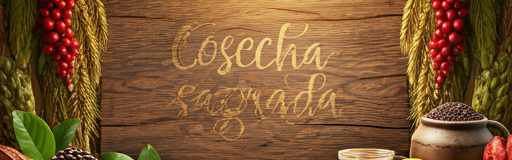 Cosecha
sagrada